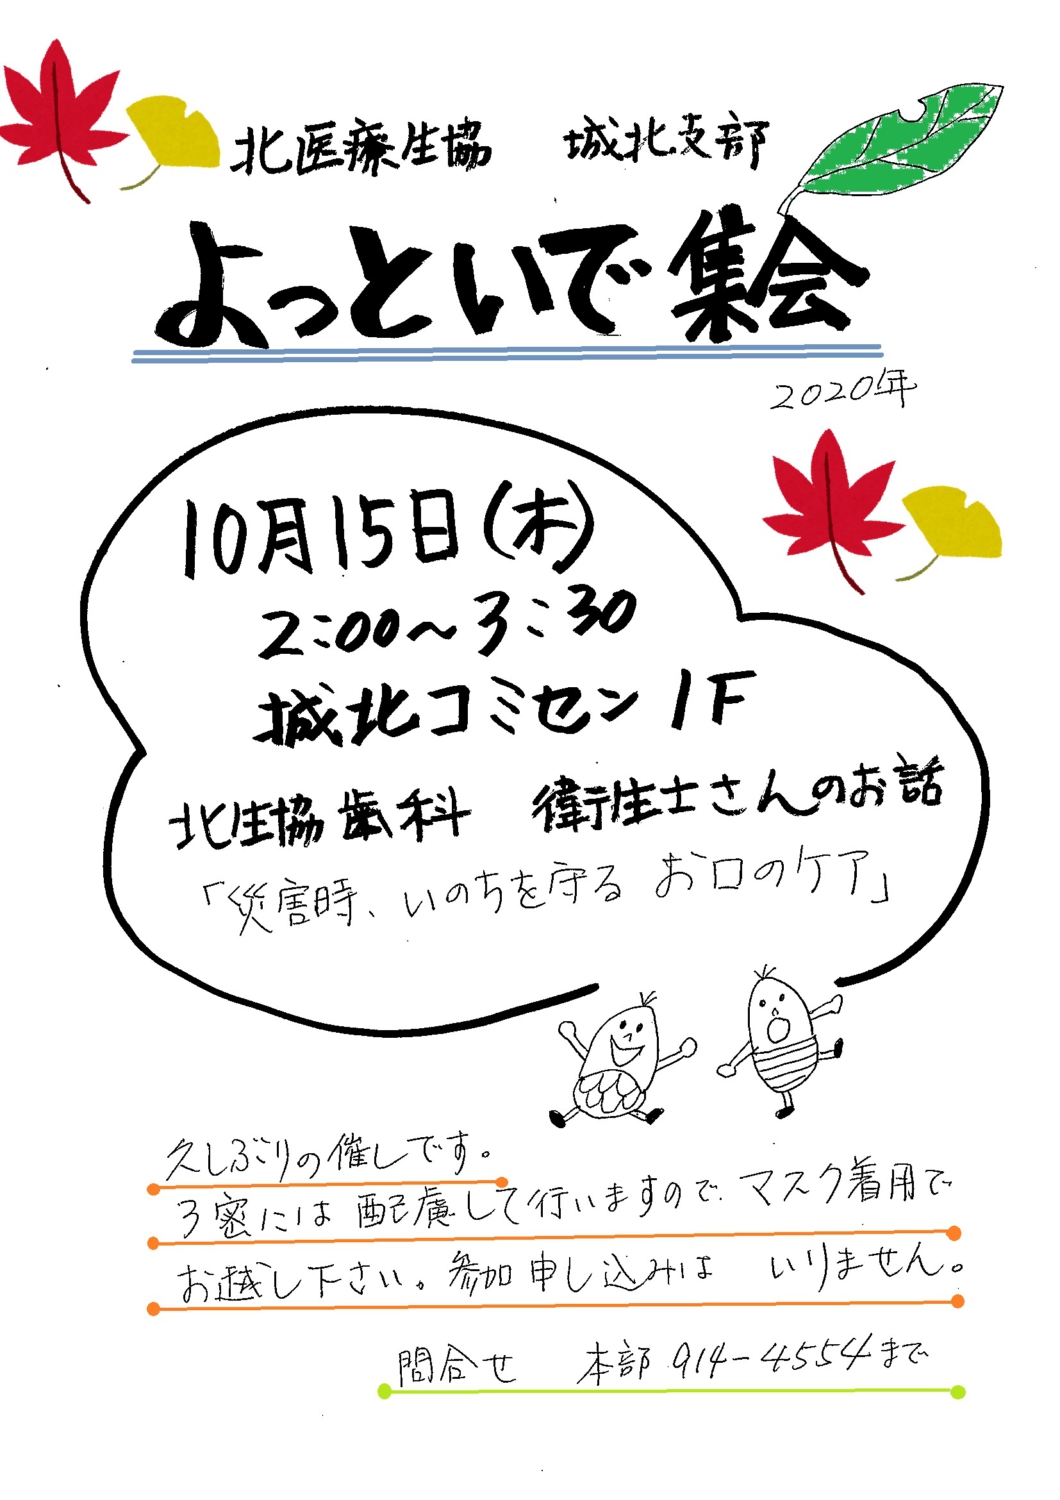 北医療生協 城北支部
よっといで集会
2020年
10月15日(木)
2:00～3:30
城北コミセン1F
北生協歯科 衛生士さんのお話
「災害時、いのちを守る お口のケア」
久しぶりの催しです。
3密には配慮して行いますので、マスク着用で
お越し下さい。参加申し込みは いりません。
問合せ 本部 914-4554まで